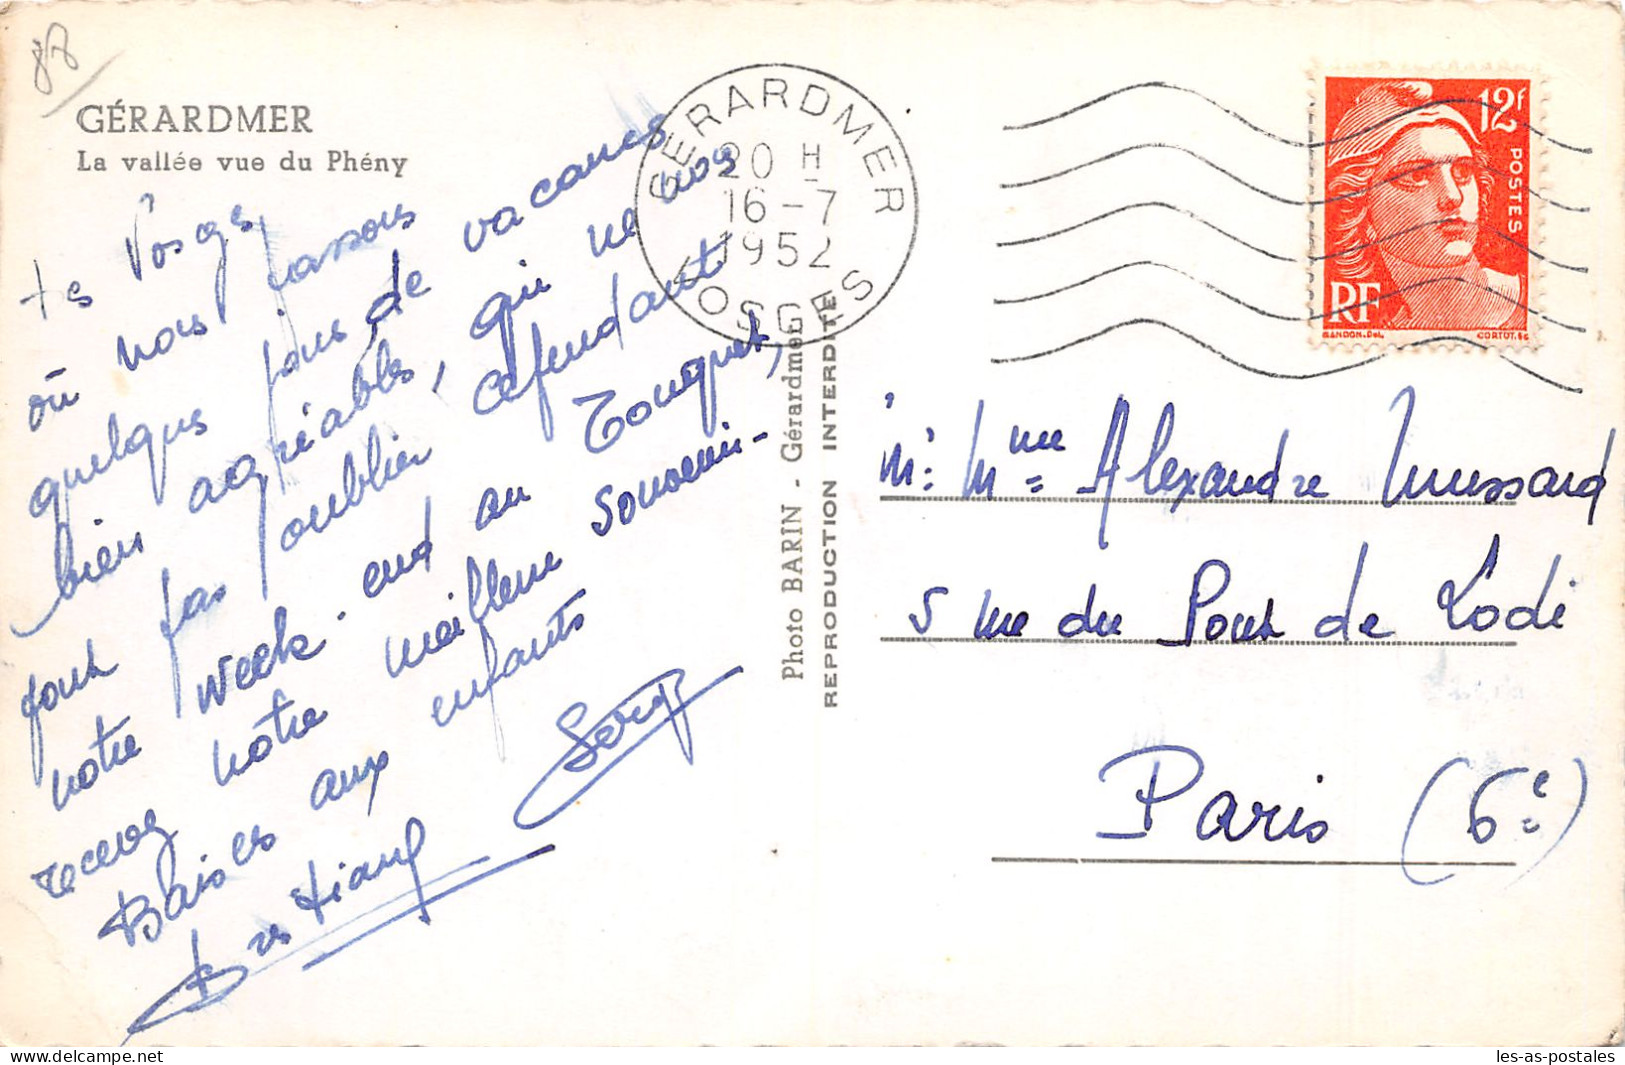 87
GÉRARDMER
La vallée vue du Phény
Les Vosges
où nous passons
quelques jours de vacances
bien agréables, qui ne nous
font pas oublier cependant
notre week-end au Touquet,
recevez notre meilleur souvenir-
Baisers aux enfants
Serge
GERARDMER
20 H
16-7
1952
VOSGES
Photo BARIN - Gérardmer
REPRODUCTION INTERDITE
12F
POSTES
RF
GANDON.Del.
CORTOT.sc
Mr Mme Alexandre Mussard
5 rue du Pont de Lodi
Paris (6e)
delcampe.net
les-as-postales